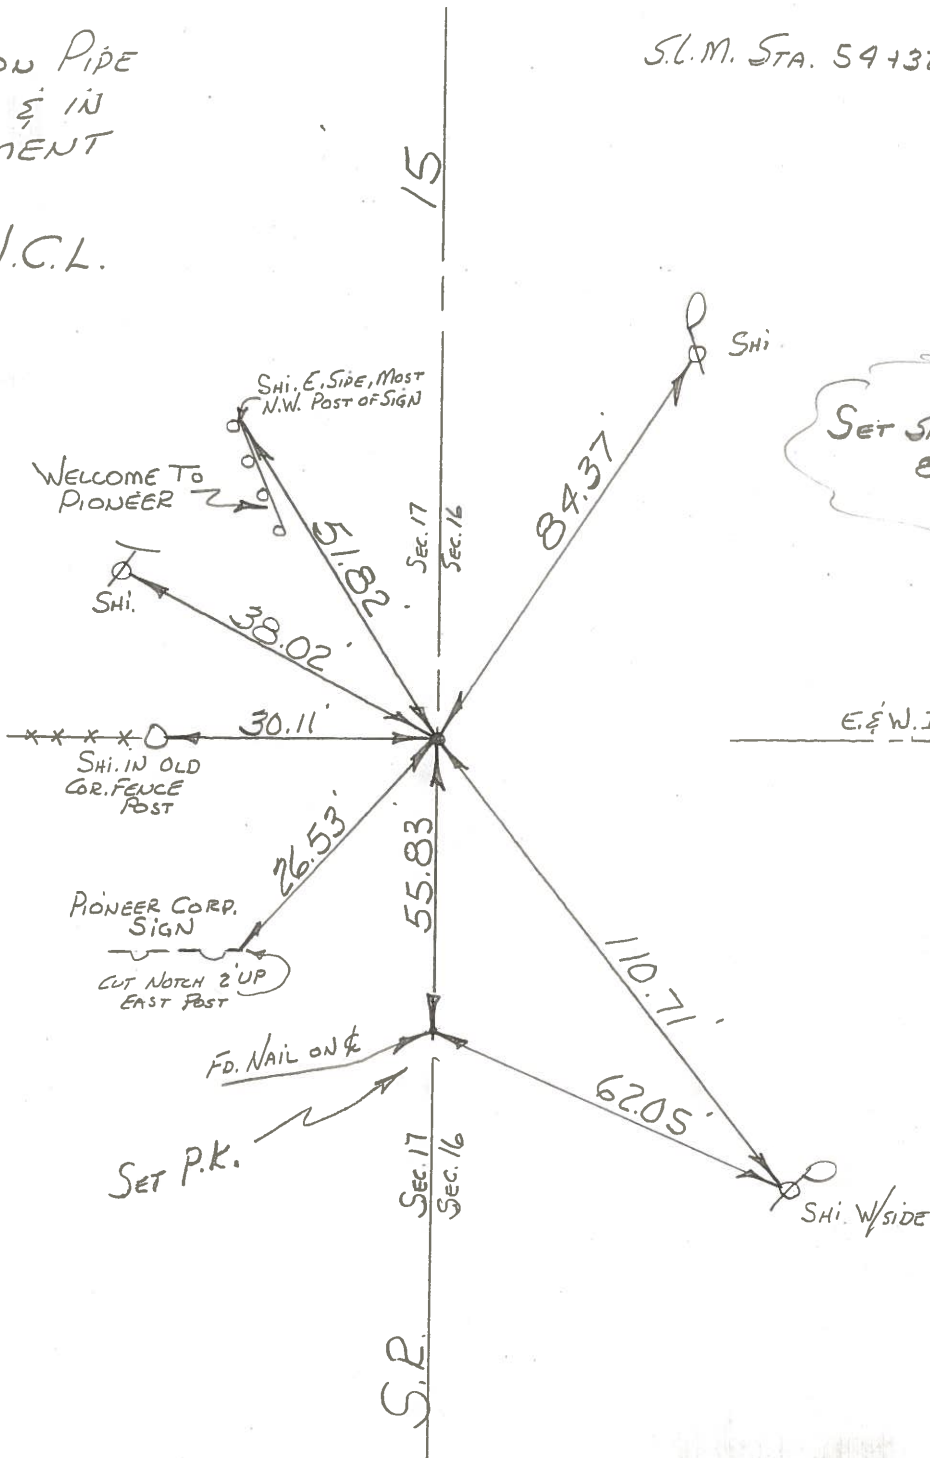 ON PIPE
& IN
MENT
S.L.M. STA. 54+32
15
N.C.L.
SHI
SHI. E. SIDE, MOST
N.W. POST OF SIGN
SET
WELCOME TO
PIONEER
SEC. 17
SEC. 16
84.37'
51.82'
SHI.
38.02'
30.11'
E. & W.
SHI. IN OLD
COR. FENCE
POST
26.53'
55.83'
PIONEER CORP.
SIGN
CUT NOTCH 2' UP
EAST POST
110.71'
FD. NAIL ON ℄
62.05'
SET P.K.
SEC. 17
SEC. 16
SHI. W/SIDE
S.R.